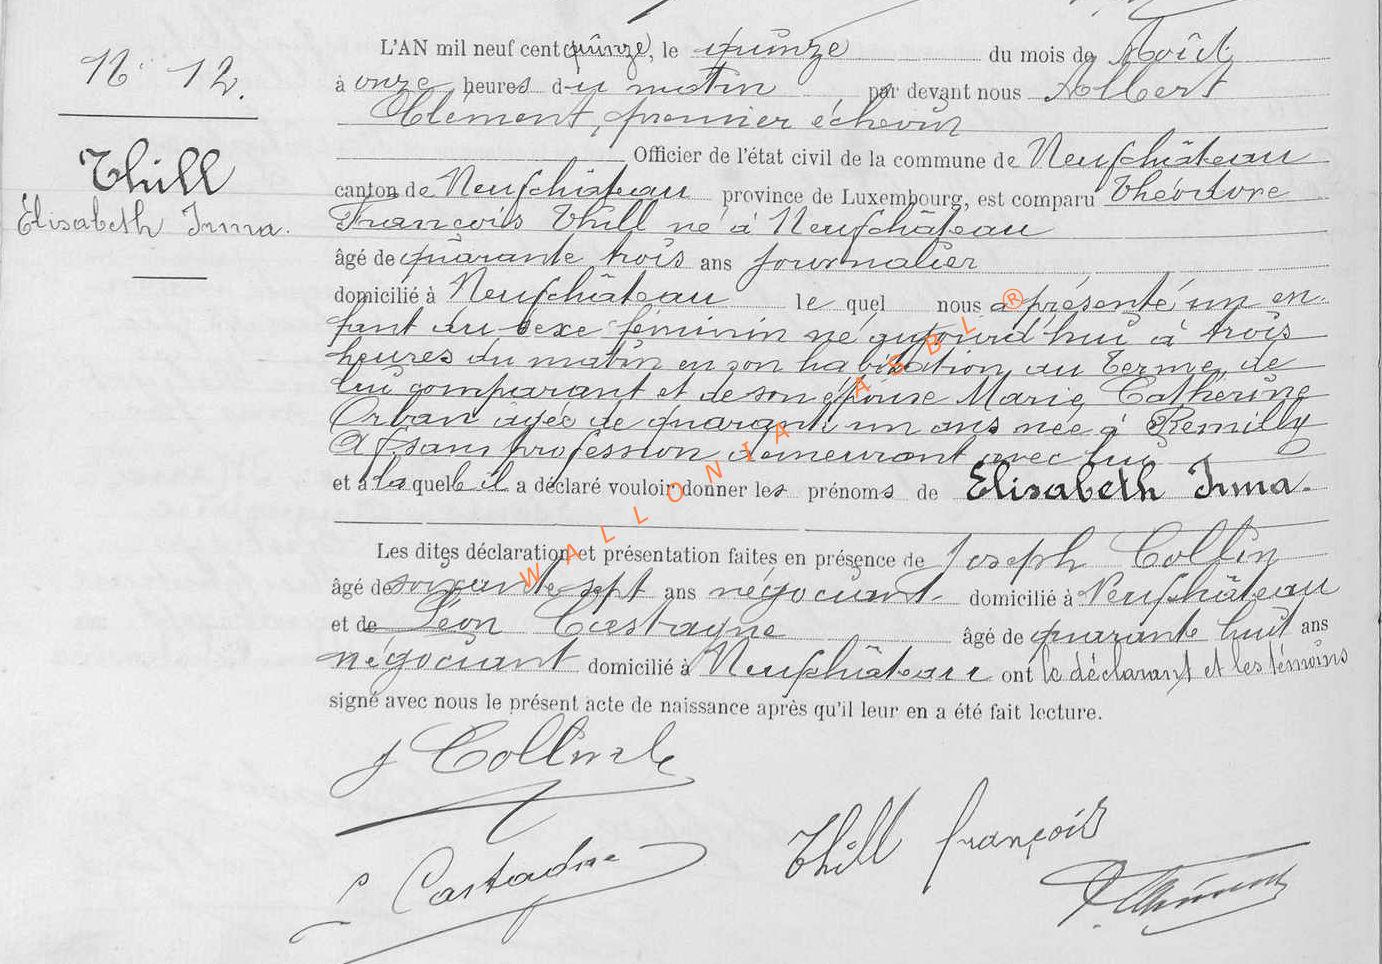 N° 12.
Thill
Élisabeth Irma.
L'AN mil neuf cent quinze, le quinze du mois de Août
à onze heures du matin par devant nous Albert
Clément, premier échevin
Officier de l'état civil de la commune de Neufchâteau
canton de Neufchâteau province de Luxembourg, est comparu Théodore
François Thill né à Neufchâteau
âgé de quarante trois ans journalier
domicilié à Neufchâteau le quel nous a présenté un en-
fant du sexe féminin né aujourd'hui à trois
heures du matin en son habitation au Terme, de
lui comparant et de son épouse Marie Catherine
Orban agée de quarante un ans née à Remilly
sans profession demeurant avec lui
et à laquelle il a déclaré vouloir donner les prénoms de Elisabeth Irma.
Les dites déclaration et présentation faites en présence de Joseph Collin
âgé de soixante sept ans négociant domicilié à Neufchâteau
et de Léon Castagne âgé de quarante huit ans
négociant domicilié à Neufchâteau ont le déclarant et les témoins
signé avec nous le présent acte de naissance après qu'il leur en a été fait lecture.
J Collin
Thill françois
L Castagne
WALLONIA ASBL ®